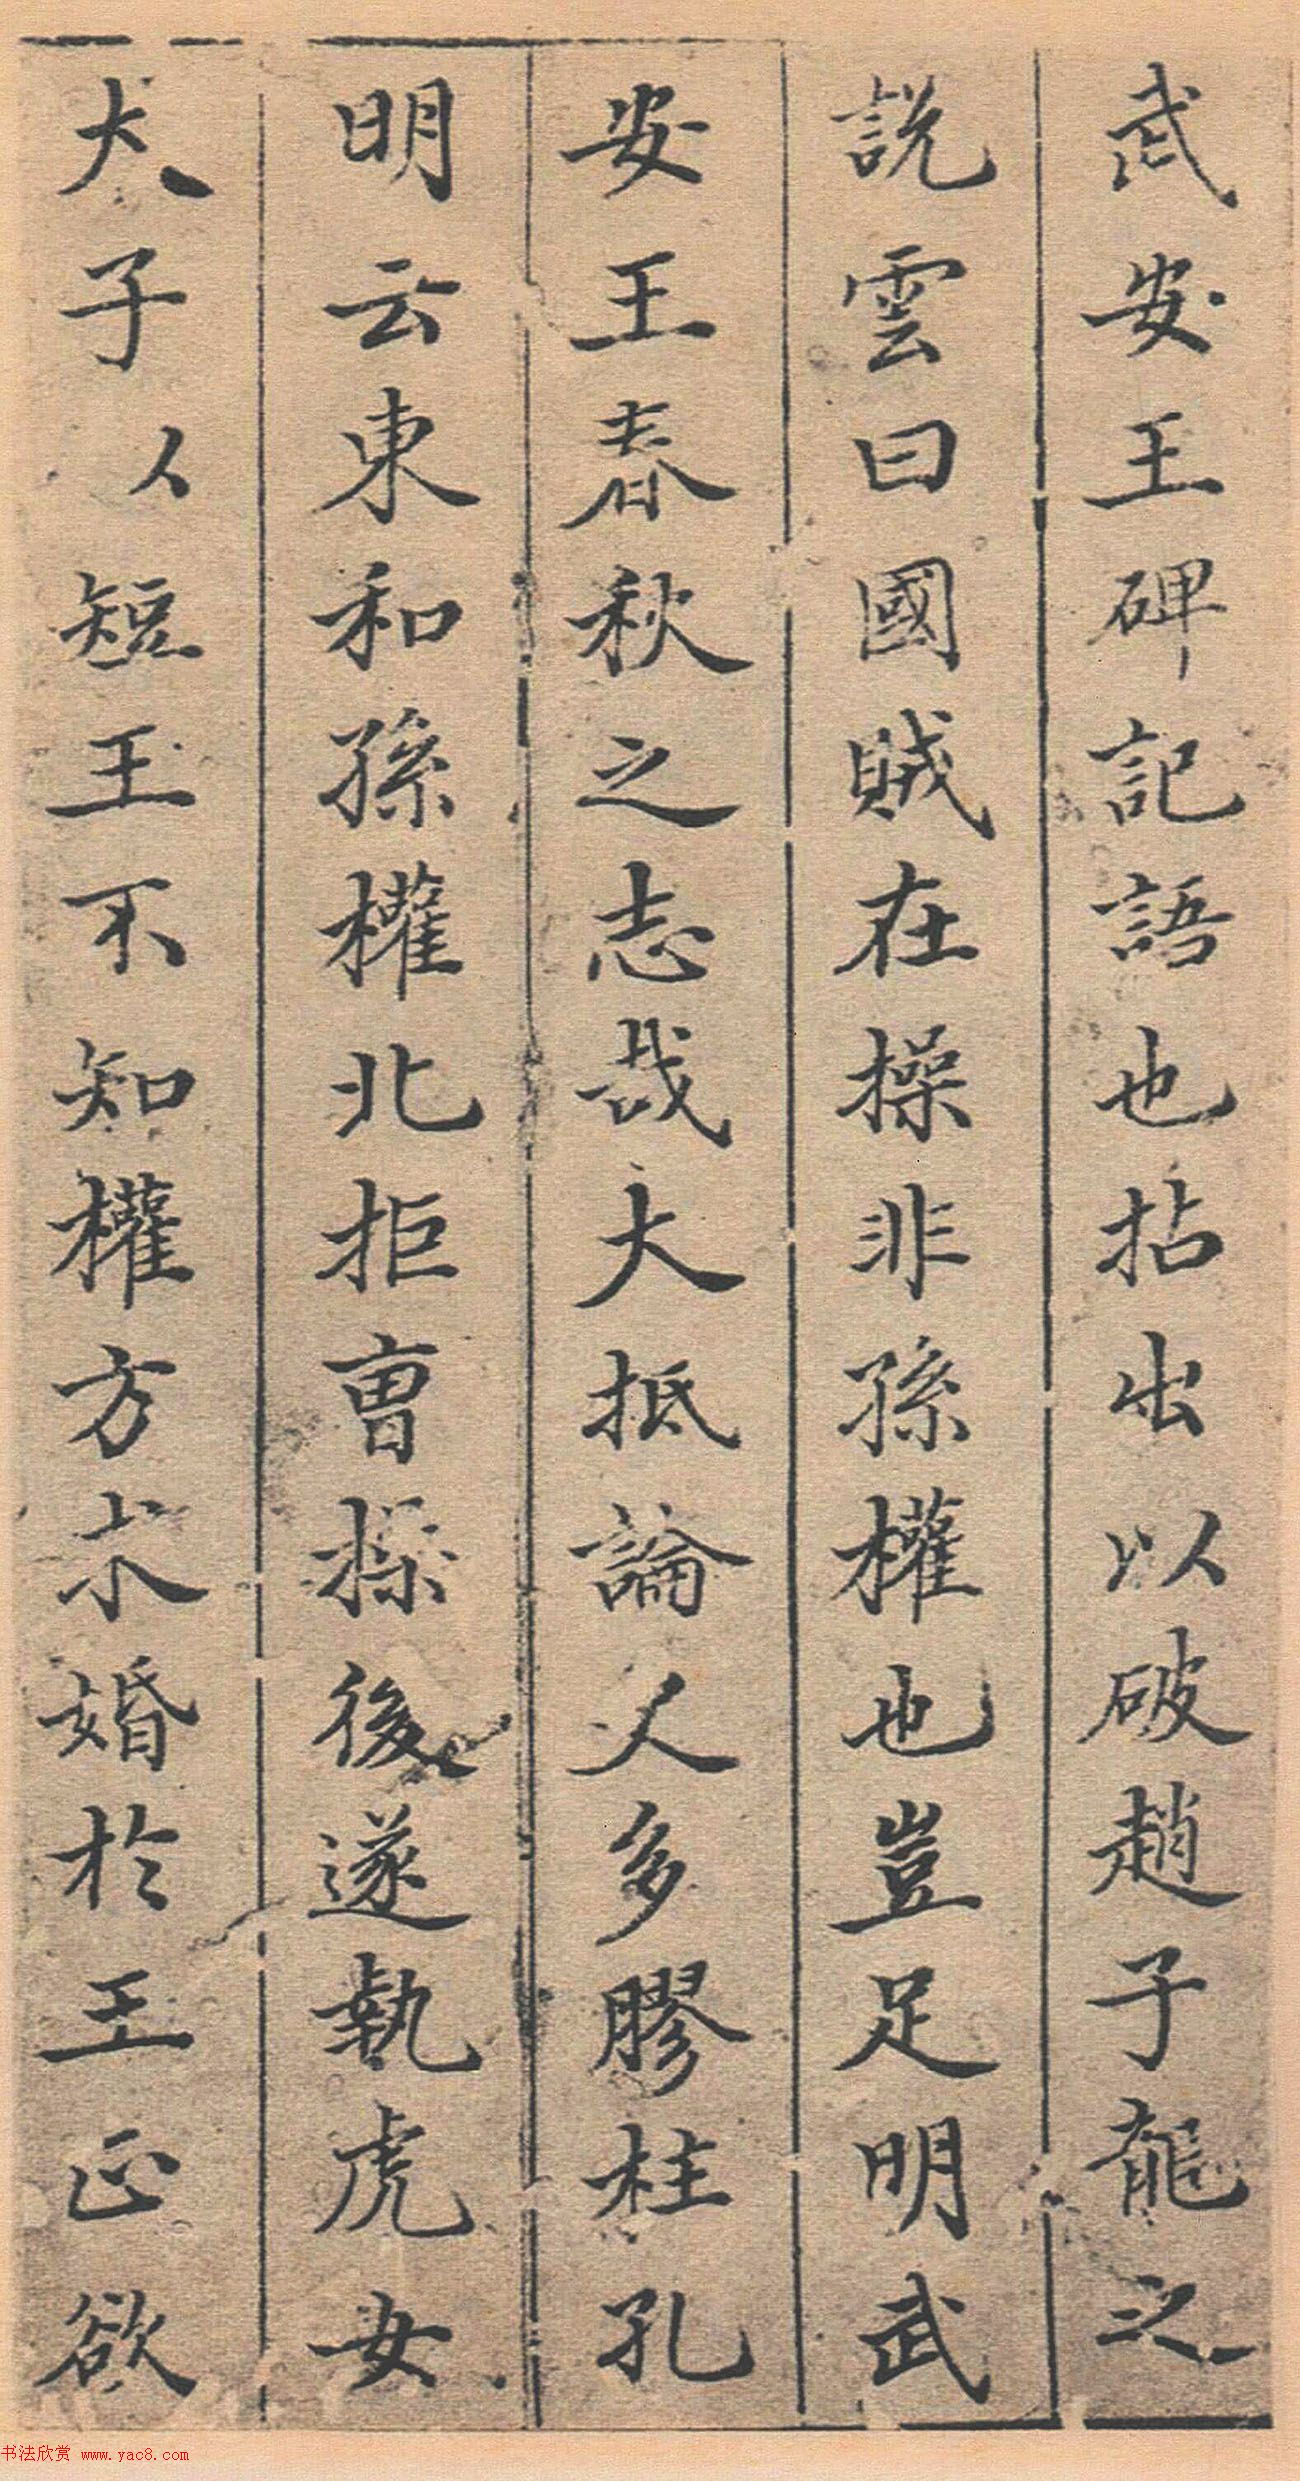 武安王碑記語也拈出以破趙子龍之
說雲曰國賊在操非孫權也豈足明武
安王春秋之志哉大抵論人多膠柱孔
明云東和孫權北拒曹操後遂執虎女
犬子以短王不知權方求婚於王正欲
书法欣赏 www.yac8.com